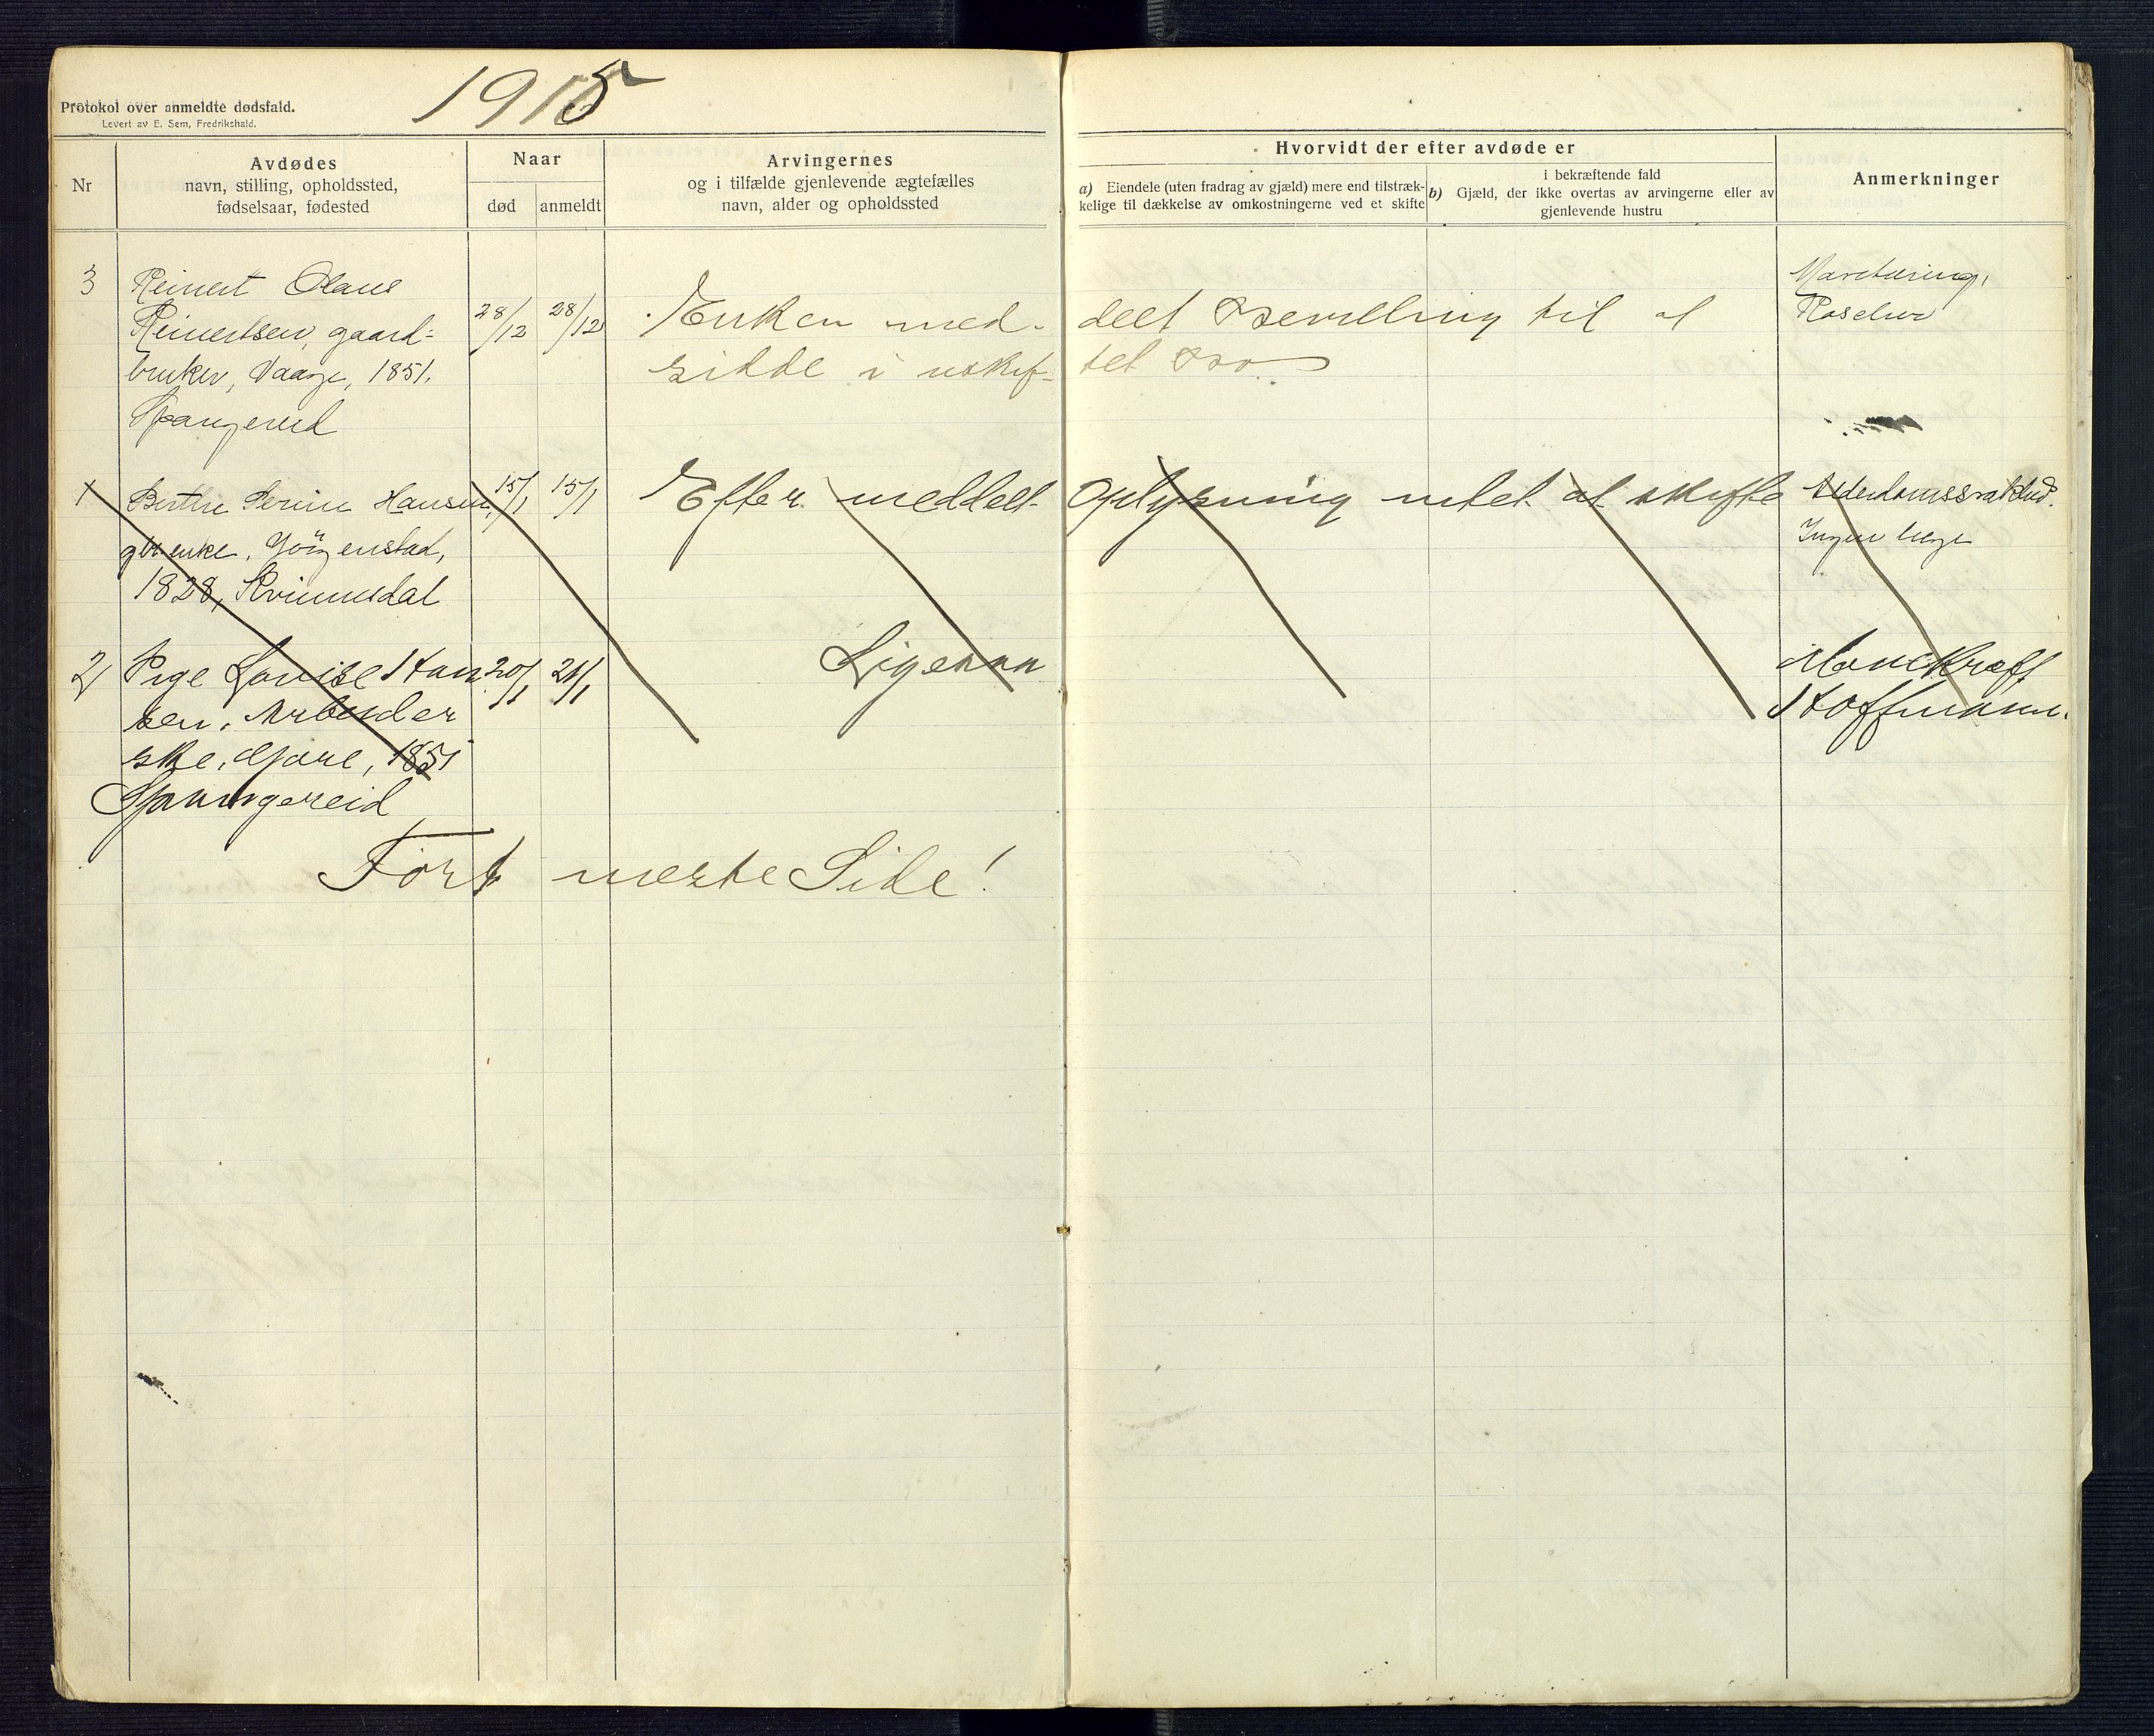 1915
Protokol over anmeldte dødsfald.
Levert av E. Sem, Fredrikshald.
Nr
Avdødes
navn, stilling, opholdssted,
fødselsaar, fødested
Naar
død
anmeldt
Arvingernes
og i tilfælde gjenlevende ægtefælles
navn, alder og opholdssted
Hvorvidt der efter avdøde er
a) Eiendele (uten fradrag av gjæld) mere end tilstræk-
kelige til dækkelse av omkostningerne ved et skifte
i bekræftende fald
b) Gjæld, der ikke overtas av arvingerne eller av
gjenlevende hustru
Anmerkninger
3
Reinert Olaus
Reinertsen, gaard-
bruker, Vaage, 1851.
Spangereid
28/12
28/12
Enken med-
delt Bevilling til at
sidde i uskif-
tet Bo
1
Berthe Serine Hansen,
gbr enke, Jörgenstad,
1828, Kvinnesdal
15/1
15/1
Efter meddelt
Oplysning intet at skifte
Alderdomssvakhed.
Ingen læge
2
Pige Lovise Han
sen, Arbeider
ske, 1851
Spangereid
20/1
21/1
Ligesaa
Mavekræft
Hoffmann.
Fort næste Side!